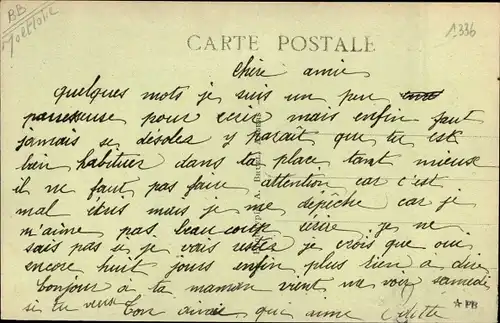 BB
Molthone
1336
CARTE POSTALE
Chère amie
quelques mots je suis un peu
paresseuse pour ecrir mais enfin faut
jamais se désoler y parait que tu est
bien habituer dans ta place tant mieux
il ne faut pas faire attention car c'est
mal écris mais je me dépêche car je
m'aime pas beaucoup écrire je ne
sais pas si je vais rester je crois que oui
encore huit jours enfin plus rien a dire
Bonjour à ta maman vient me voir samedi
si tu veux Ton amie que aime Odette
★ PB